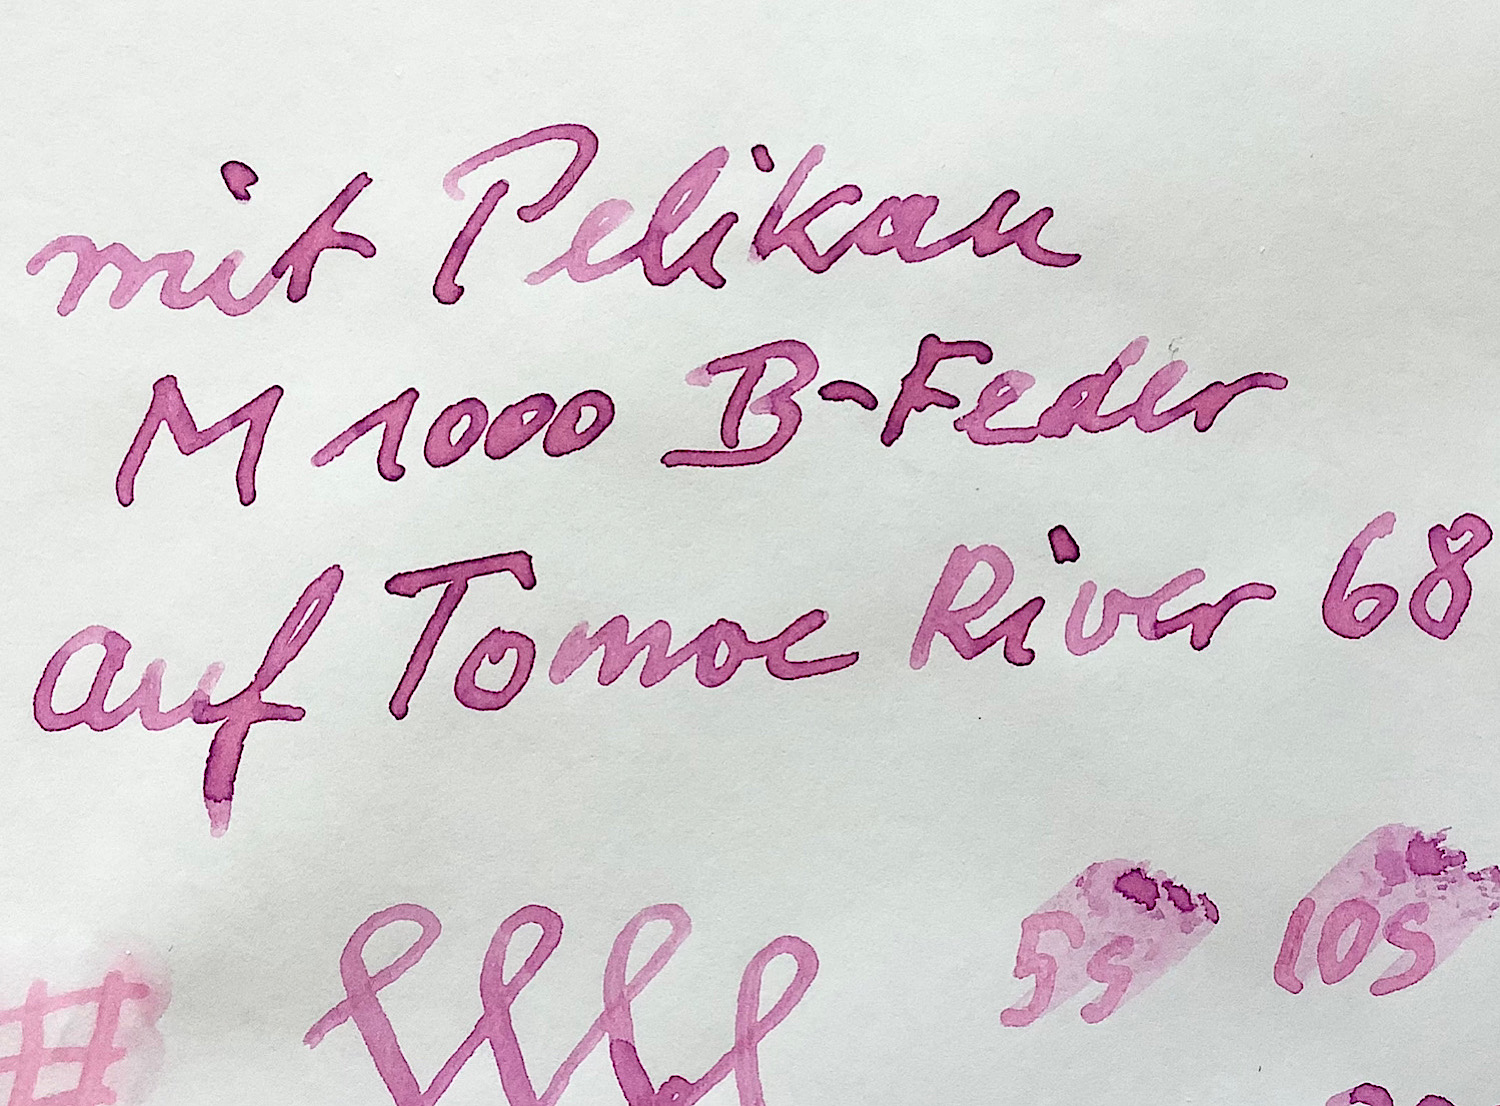 mit Pelikan
M 1000 B-Feder
auf Tomoe River 68
5s 10s